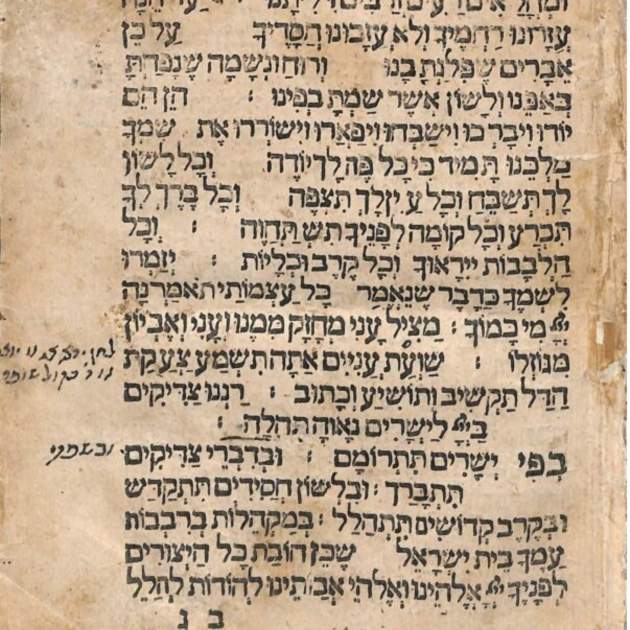 עזרונו רחמיך ולא עזבונו חסדיך על כן
אברים שפלגת בנו ורוח ונשמה שנפחת
באפנו ולשון אשר שמת בפינו : הן הם
יודו ויברכו וישבחו ויפארו וישוררו את שמך
מלכנו תמיד כי כל פה לך יודה וכל לשון
לך תשבח וכל עין לך תצפה וכל ברך לך
תכרע וכל קומה לפניך תשתחוה : וכל
הלבבות ייראוך וכל קרב וכליות : יזמרו
לשמך כדבר שנאמר כל עצמותי תאמרנה
ייי מי כמוך : מציל עני מחזק ממנו ועני ואביון
מגוזלו : שועת עניים אתה תשמע צעקת
הדל תקשיב ותושיע וכתוב : רננו צדיקים
בייי לישרים נאוה תהלה :
בפי ישרים תתרומם : ובדברי צדיקים ובשפתי
תתברך : ובלשון חסידים תתקדש
ובקרב קדושים תתהלל : במקהלות ברבבות
עמך בית ישראל שכן חובת כל היצורים
לפניך ייי אלהינו ואלהי אבותינו להודות להלל
ב נ